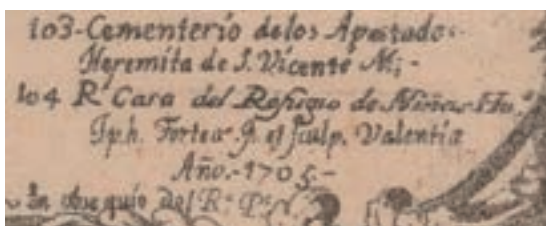 103-Cementerio delos Apestados-
Heremita de S. Vicente M;-
104 Rl Casa del Refugio de Niñas
Iph. Fortea f. et sculp. Valentiæ
Año.-1705-
En obsequio del R. P.